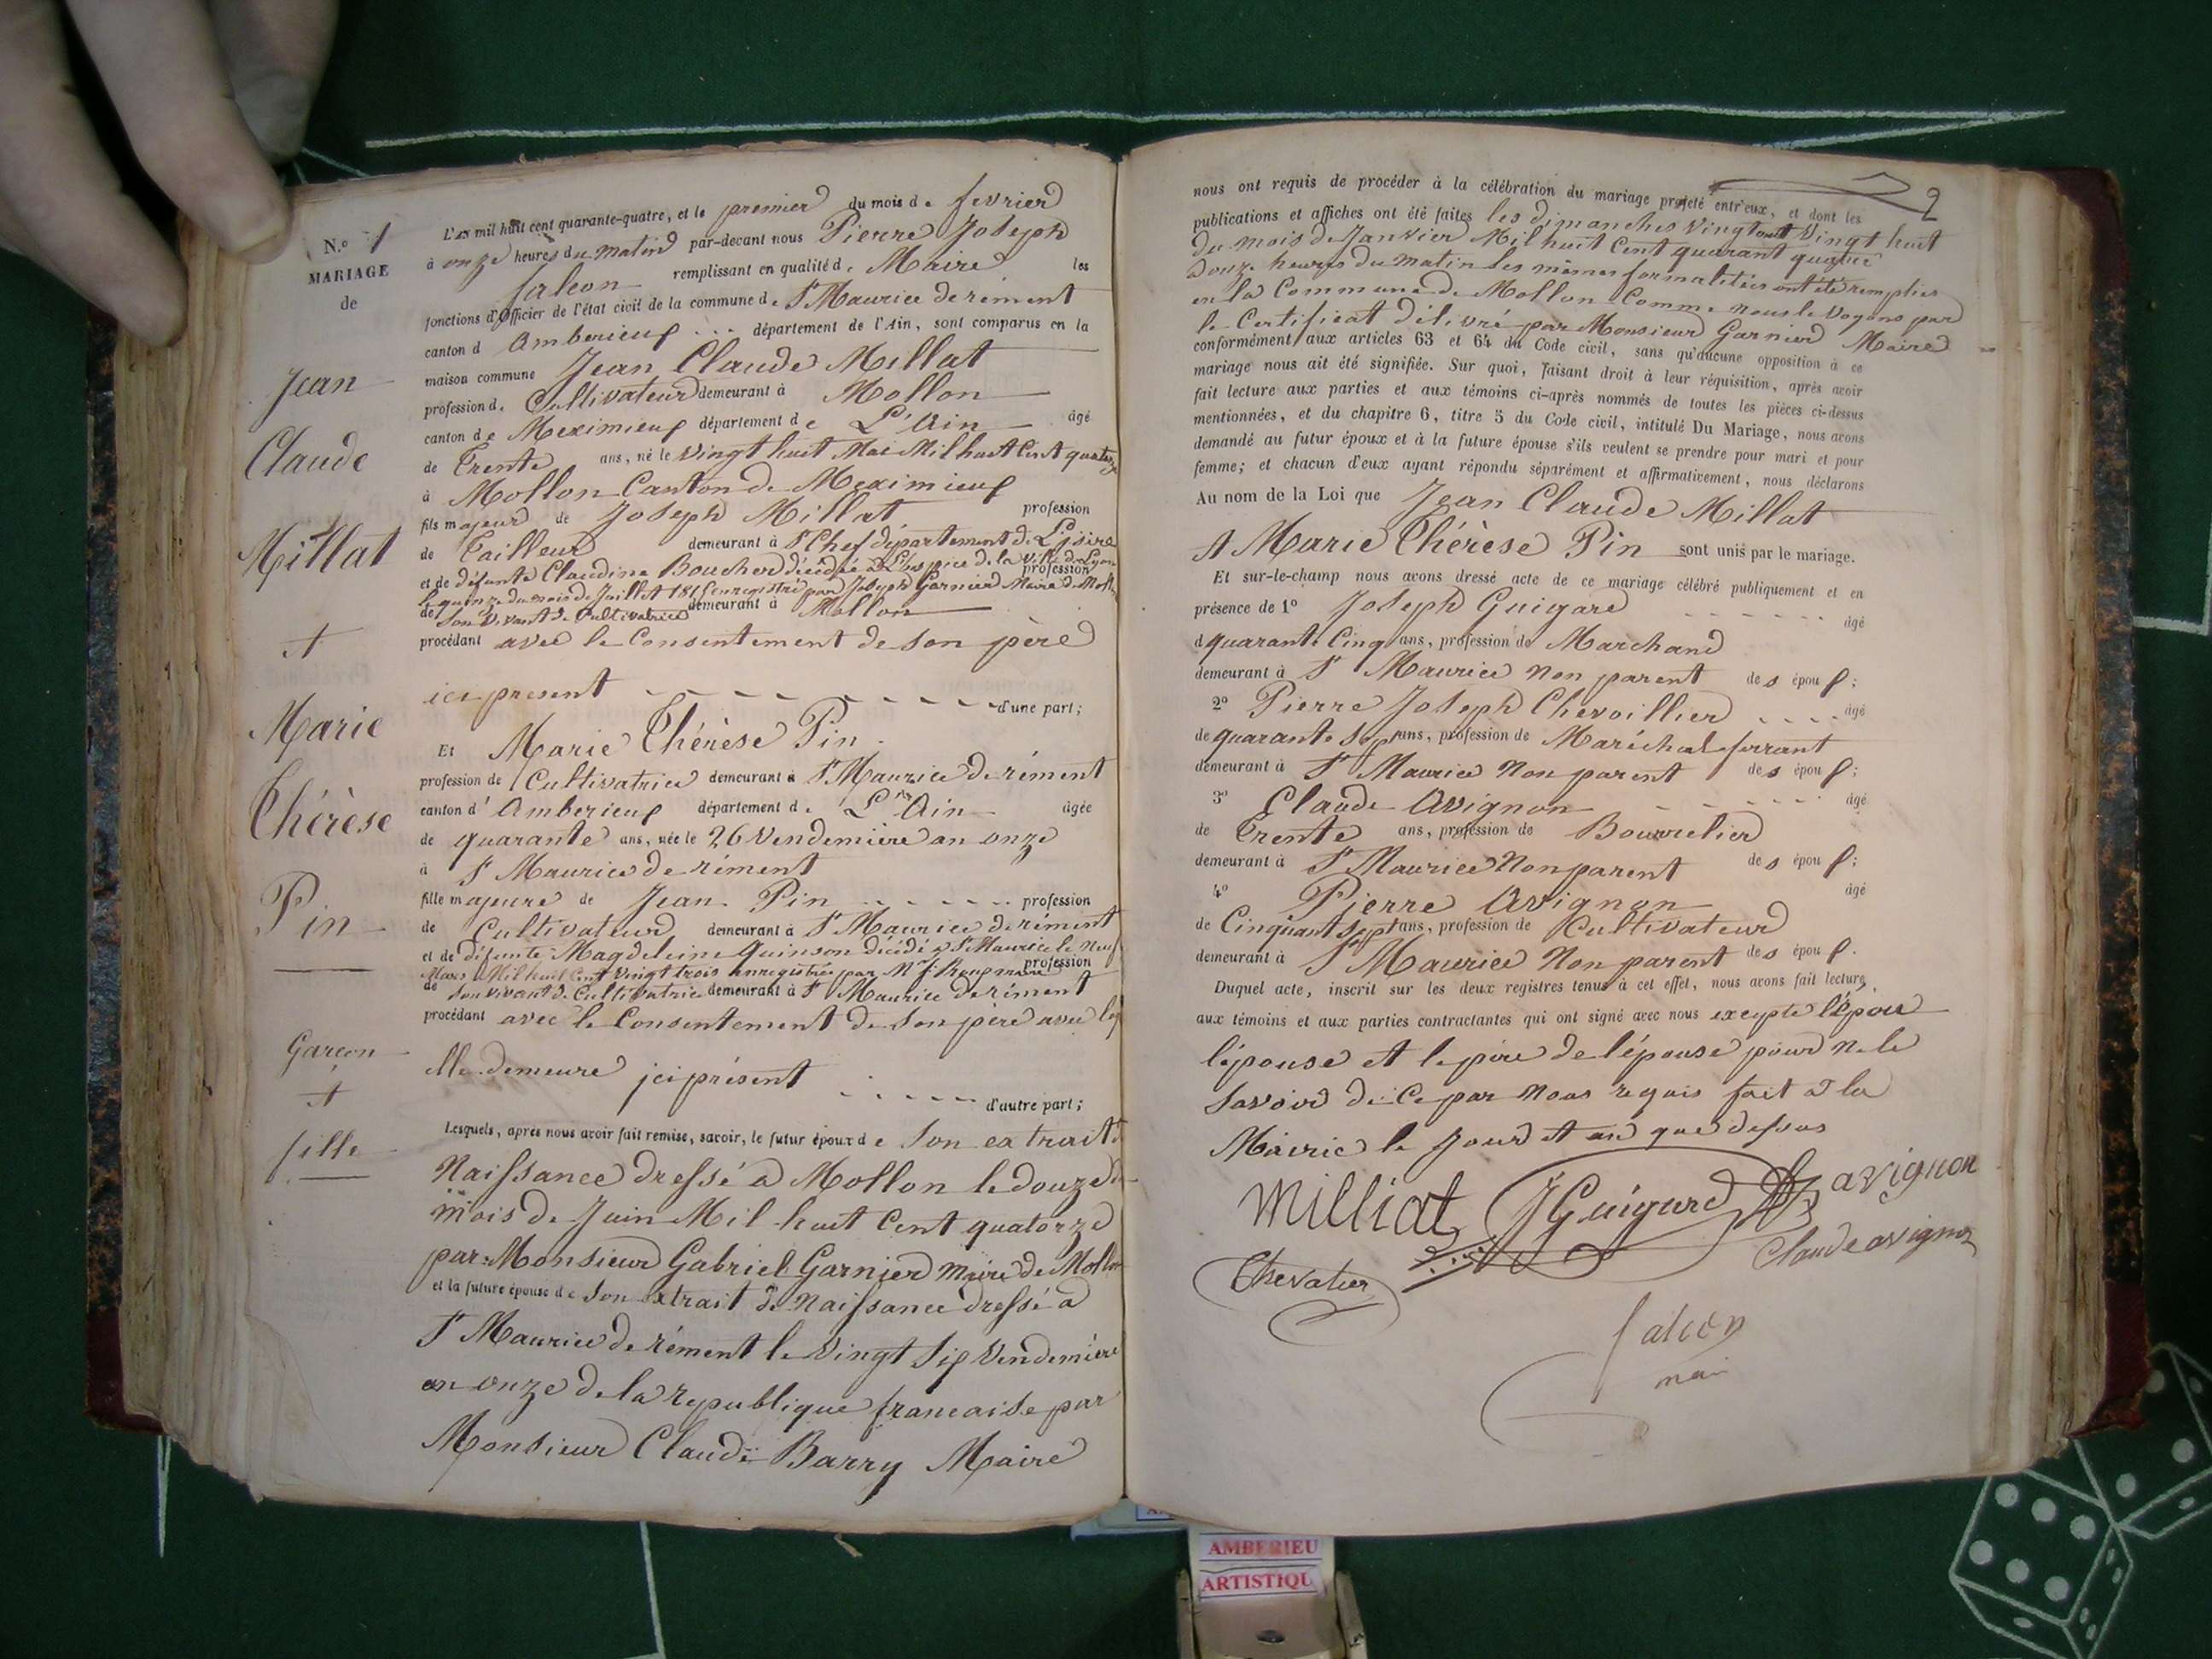 N.o 1
MARIAGE
de
Jean
Claude
Millat
et
Marie
Thérèse
Pin
Garçon
et
fille
L'AN mil huit cent quarante-quatre, et le premier du mois de fevrier
à onze heures du matin par-devant nous Pierre Joseph
falcon remplissant en qualité de Maire les
fonctions d'Officier de l'état civil de la commune de St Maurice de rément
canton d Amberieux département de l'Ain, sont comparus en la
maison commune Jean Claude Millat
profession de Cultivateur demeurant à Mollon
canton de Meximieux département de L'Ain âgé
de Trente ans, né le vingt huit Mai Mil huit Cent quatorze
à Mollon Canton de Meximieux
fils majeur de Joseph Millat profession
de Tailleur demeurant à St Chef département de L'isère
et de défunte Claudine Boucher décédée à L'hospice de la ville de Lyon profession
le quinze du mois de Juillet enregistré par Joseph Garnier Maire de Moll
de Son vivant de Cultivatrice demeurant à Mollon
procédant avec le Consentement de son père
ici présent d'une part;
Et Marie Thérèse Pin
profession de Cultivatrice demeurant à St Maurice de rément
canton d' Amberieux département de L'Ain âgée
de quarante ans, née le 26 Vendemière an onze
à St Maurice de rément
fille majeure de Jean Pin profession
de Cultivateur demeurant à St Maurice de rément
et de défunte Magdeleine Quinson décédée à St Maurice le neuf
Mars Mil huit Cent vingt trois enregistrée par Mr profession
de son vivant de Cultivatrice demeurant à St Maurice de rément
procédant avec le Consentement de son père avec leq
elle demeure ici présent d'autre part;
Lesquels, après nous avoir fait remise, savoir, le futur époux de Son extrait de
Naissance dressé à Mollon le douze du
mois de Juin Mil huit Cent quatorze
par Monsieur Gabriel Garnier Maire de Mollon
et la future épouse de Son extrait de Naissance dressé à
St Maurice de rément le vingt six Vendemière
an onze de la republique francaise par
Monsieur Claude Barry Maire
2
nous ont requis de procéder à la célébration du mariage projeté entr'eux, et dont les
publications et affiches ont été faites les dimanches vingt et un et vingt huit
du mois de Janvier Mil huit Cent quarant quatre
à onze heures du matin les mêmes formalitées ont été remplies
en la Commune de Mollon Comme nous le voyons par
le Certificat délivré par Monsieur Garnier Maire
conformément aux articles 63 et 64 du Code civil, sans qu'aucune opposition à ce
mariage nous ait été signifiée. Sur quoi, faisant droit à leur réquisition, après avoir
fait lecture aux parties et aux témoins ci-après nommés de toutes les pièces ci-dessus
mentionnées, et du chapitre 6, titre 5 du Code civil, intitulé Du Mariage, nous avons
demandé au futur époux et à la future épouse s'ils veulent se prendre pour mari et pour
femme; et chacun d'eux ayant répondu séparément et affirmativement, nous déclarons
Au nom de la Loi que Jean Claude Millat
et Marie Thérèse Pin sont unis par le mariage.
Et sur-le-champ nous avons dressé acte de ce mariage célébré publiquement et en
présence de 1o Joseph Guigard âgé
d quarante Cinq ans, profession de Marchand
demeurant à St Maurice non parent des époux;
2o Pierre Joseph Chevoillier âgé
de quarante Sept ans, profession de Maréchal ferrant
demeurant à St Maurice Non parent des époux;
3o Claude Avignon âgé
de Trente ans, profession de Bourrelier
demeurant à St Maurice Non parent des époux;
4o Pierre Avignon âgé
de Cinquant Sept ans, profession de Cultivateur
demeurant à St Maurice Non parent des époux.
Duquel acte, inscrit sur les deux registres tenus à cet effet, nous avons fait lecture
aux témoins et aux parties contractantes qui ont signé avec nous excepté l'époux
l'épouse et le père de l'épouse pour ne le
savoir de Ce par Nous requis fait à la
Mairie le Jour et an que dessus
Milliat JGuigard avignon
Chevalier Claude avignon
falcon
mair
AMBERIEU
ARTISTIQU